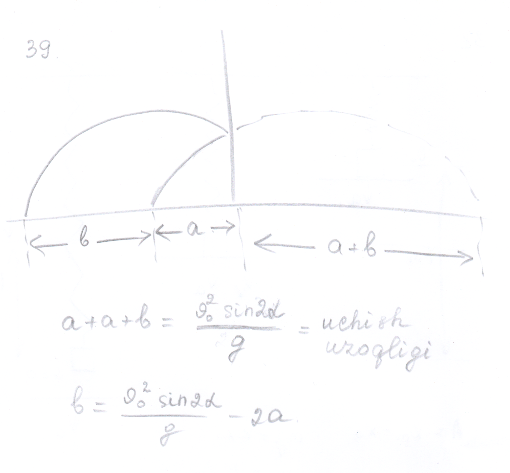 39.
b a a+b
a+a+b = ϑ₀² sin2α / g = uchish uzoqligi
b = ϑ₀² sin2α / g - 2a